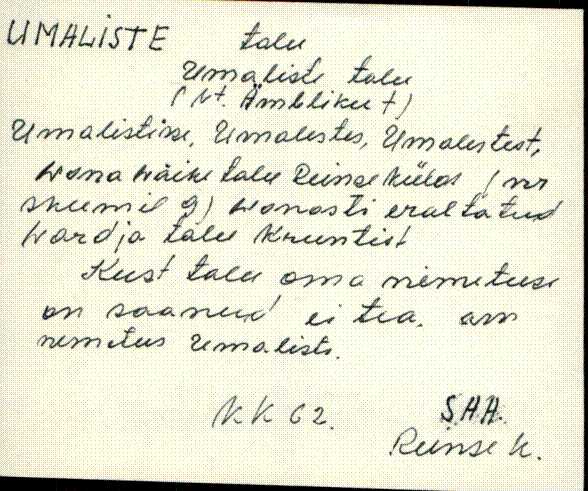 UMALISTE talu
Umaliste talu
(vt. Ämbliku t)
Umalistise, Umalestes, Umalestest,
wana wäike talu Reinse küläs (nr
skeemil 9) wanasti eraltatud
wardja talu kruntist
Kust talu oma nimetuse
on saanud ei tea. am
nimetus Umaliste.
KK 62. SHH.
Reinse k.